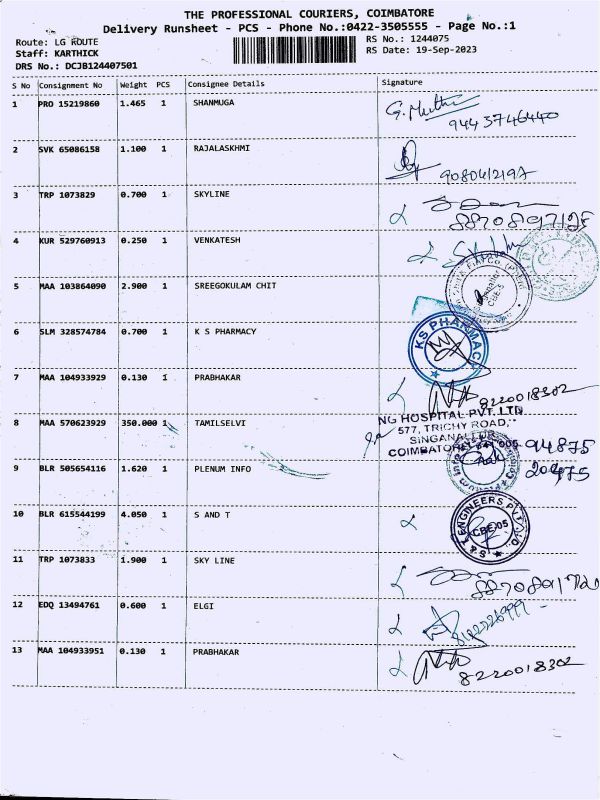 THE PROFESSIONAL COURIERS, COIMBATORE
Delivery Runsheet - PCS - Phone No.:0422-3505555 - Page No.:1
Route: LG ROUTE
Staff: KARTHICK
DRS No.: DCJB124407501
RS No.: 1244075
RS Date: 19-Sep-2023
S No Consignment No Weight PCS Consignee Details Signature
1 PRO 15219860 1.465 1 SHANMUGA
9443746440
2 SVK 65086158 1.100 1 RAJALASKHMI
3 TRP 1073829 0.700 1 SKYLINE
4 KUR 529760913 0.250 1 VENKATESH
5 MAA 103864090 2.900 1 SREEGOKULAM CHIT
6 SLM 328574784 0.700 1 K S PHARMACY
KS PHARMACY
7 MAA 104933929 0.130 1 PRABHAKAR
8220018302
8 MAA 570623929 350.000 1 TAMILSELVI
NG HOSPITAL PVT. LTD
577, TRICHY ROAD,
SINGANALLUR,
COIMBATORE-641 005
94875
20475
9 BLR 505654116 1.620 1 PLENUM INFO
10 BLR 615544199 4.050 1 S AND T
S & T ENGINEERS PVT LTD.
CBE-05
11 TRP 1073833 1.900 1 SKY LINE
12 EDQ 13494761 0.600 1 ELGI
13 MAA 104933951 0.130 1 PRABHAKAR
8220018302